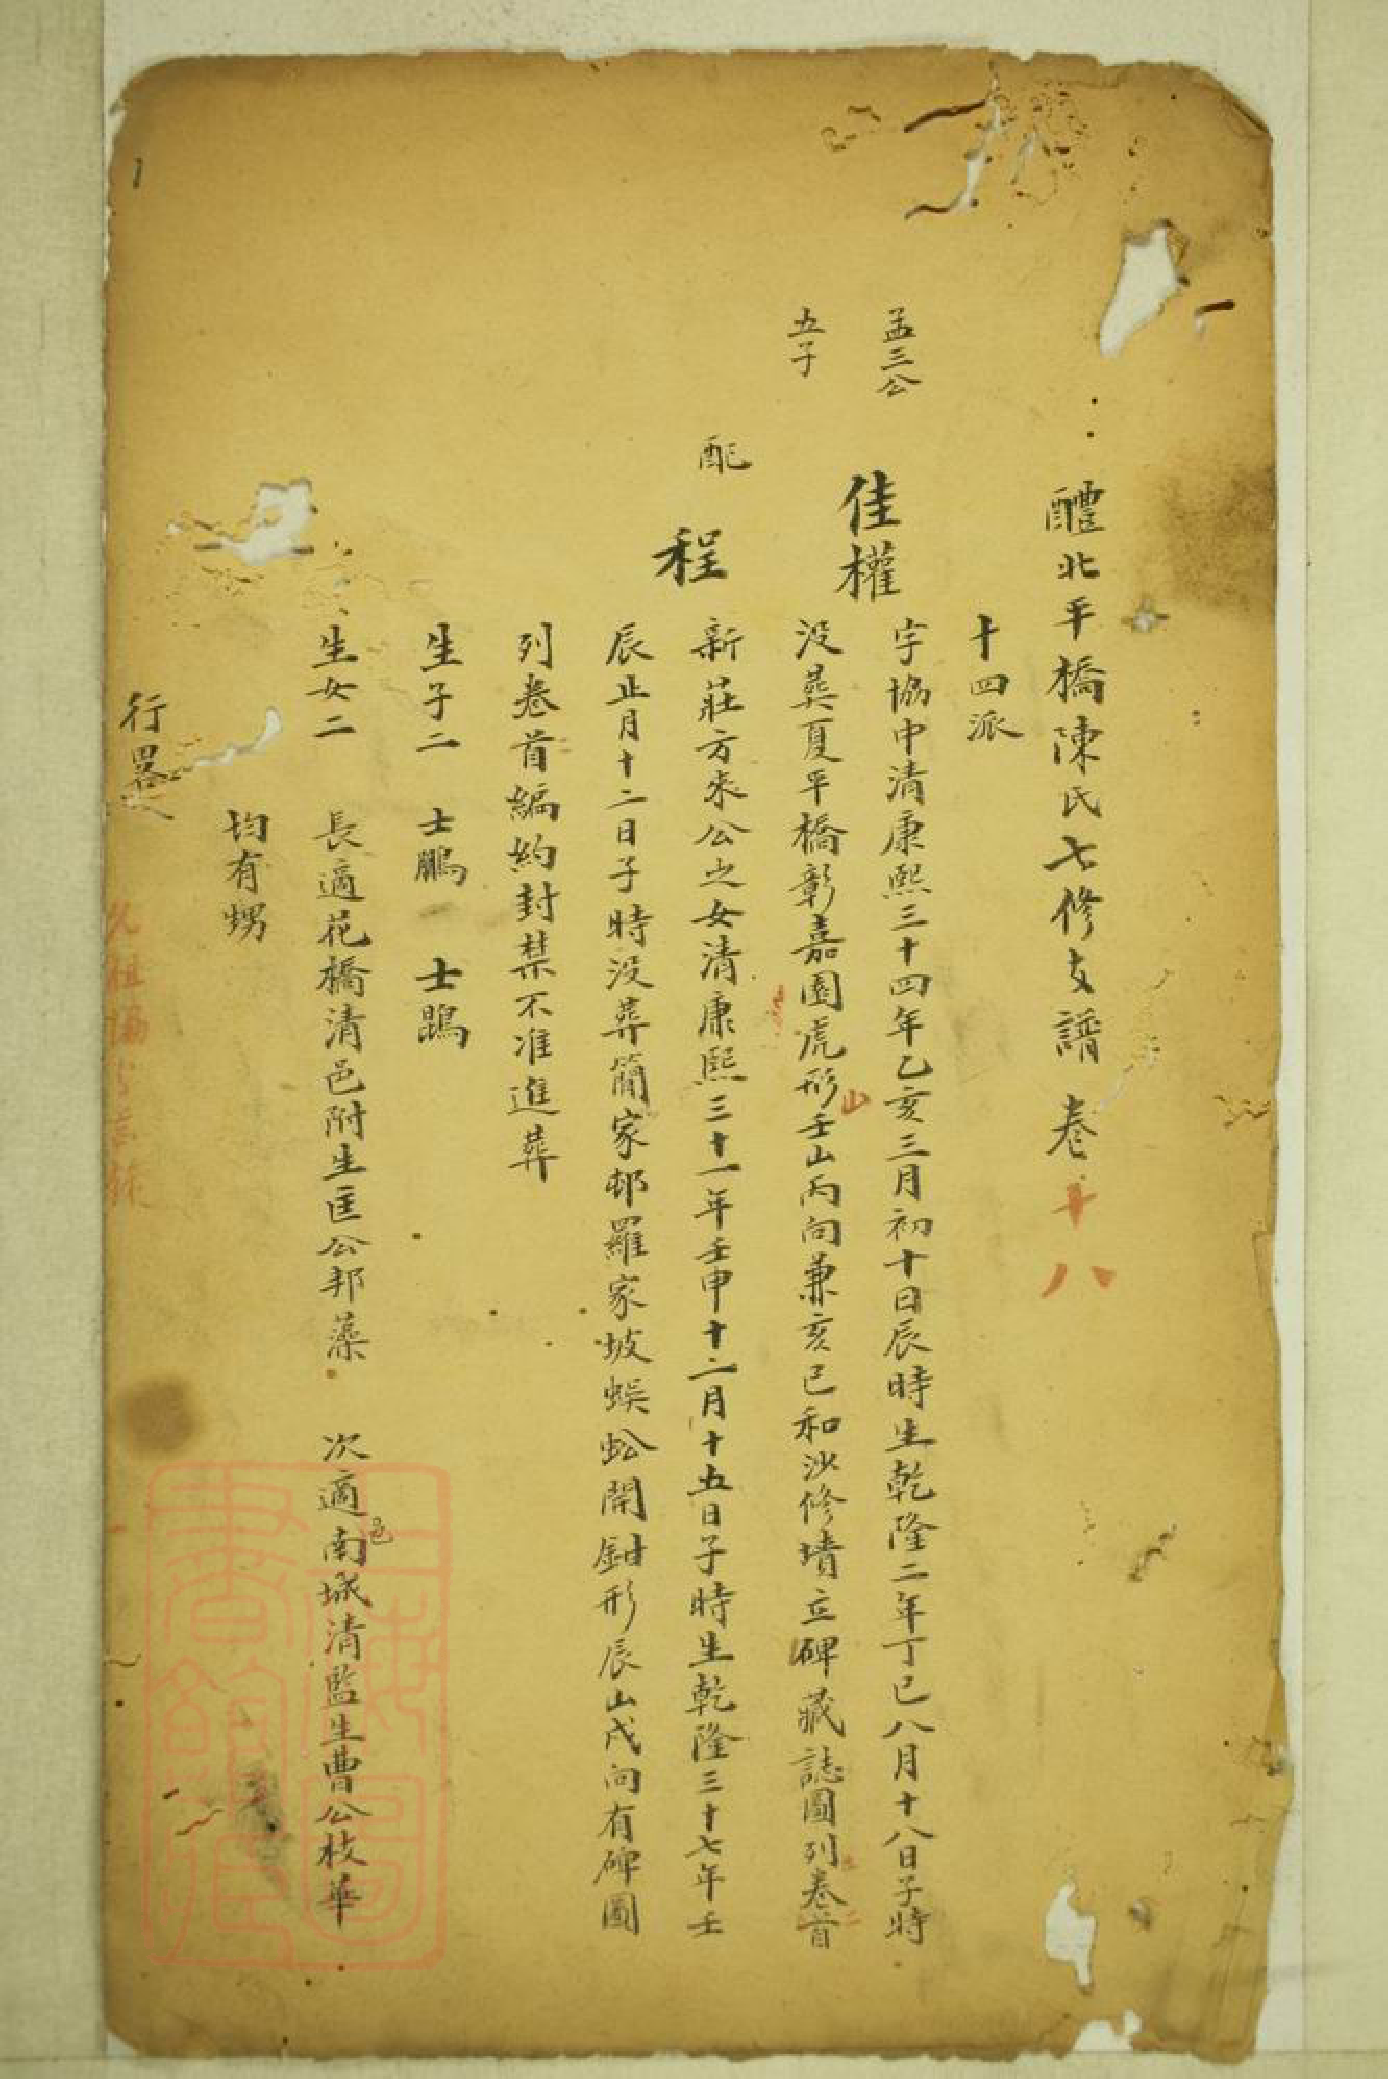 醴北平橋陳氏七修支譜 卷十八
十四派
孟三公
佳權
字協中清康熙三十四年乙亥三月初十日辰時生乾隆二年丁巳八月十八日子時
五子
没葬夏平橋彰嘉園虎形山壬山丙向兼亥巳和沙修墳立碑藏誌圖列卷首
配
程
新莊方來公之女清康熙三十一年壬申十二月十五日子時生乾隆三十七年壬
辰止月十二日子時没葬簡家邨羅家坡蜈蚣開鉗形辰山戌向有碑圖
列卷首編約封禁不准進葬
生子二 士鵬 士鵾
生女二 長適花橋清邑附生匡公邦藻 次適南城邑清監生曹公枝華
均有甥
行畧
上海圖書館藏